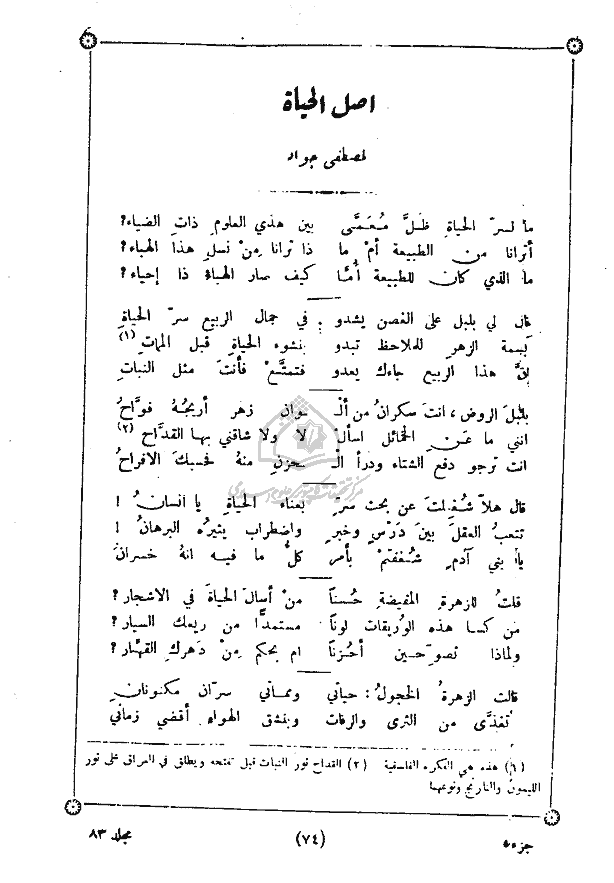 اصل الحياة
لمصطفى جواد
ما لسرّ الحياةِ ظلَّ مُعَمَّى بين هذي العلومِ ذاتِ الضياء؟
أترانا من الطبيعة أم ما ذا ترانا مِنْ نسلِ هذا الهباء؟
ما الذي كان للطبيعة أمًّا كيف صار الهباءُ ذا إحياء؟
قال لي بلبل على الغصن يشدو في جمال الربيع سرّ الحياةِ
بسمة الزهرِ للملاحظ تبدو نشوء الحياةِ قبل المماتِ (١)
إنَّ هذا الربيع جاءك يعدو فتمتَّعْ فأنتَ مثل النبات
بلبلَ الروض، انت سكران من ألـ ـوان زهر أريجهُ فوّاحُ
انني ما عَنِ الخمائل اسألْ لا ولا شاقني بها القدّاح (٢)
انت ترجو دفع الشتاء ودرأ الـ ـحزنِ منهُ فحسبك الافراحُ
قال هلاّ شُغلتَ عن بحث سرّ بعناء الحياةِ يا انسانُ !
تتعب العقلَ بينَ دَرْسٍ وخبرٍ واضطراب يثيرُه البرهانُ !
يا بني آدمٍ شُغفتمْ بأمر كلُّ ما فيه انهُ خسرانُ
قلتُ للزهرةِ المفيضةِ حُسناً منْ أسالَ الحياةَ في الاشجار؟
من كسا هذه الوُريقات لوناً مستمدًّا من ربعك السيار؟
ولماذا تصوّحين أحُزناً ام بحكم مِنْ دَهركِ القهّار؟
قالت الزهرةُ الخجولُ: حياتي ومماتي سرّان مكنونانِ
تغذّى من الثرى والرفات وبنشق الهواءِ أقضي زماني
(١) هذه هي الفكرة الفلسفية (٢) القداح نَور النبات قبل تفتحه ويطلق في العراق على نور
الليمون والنارنج ونوعهما
جزء٥ (٧٤) مجلد ٨٣